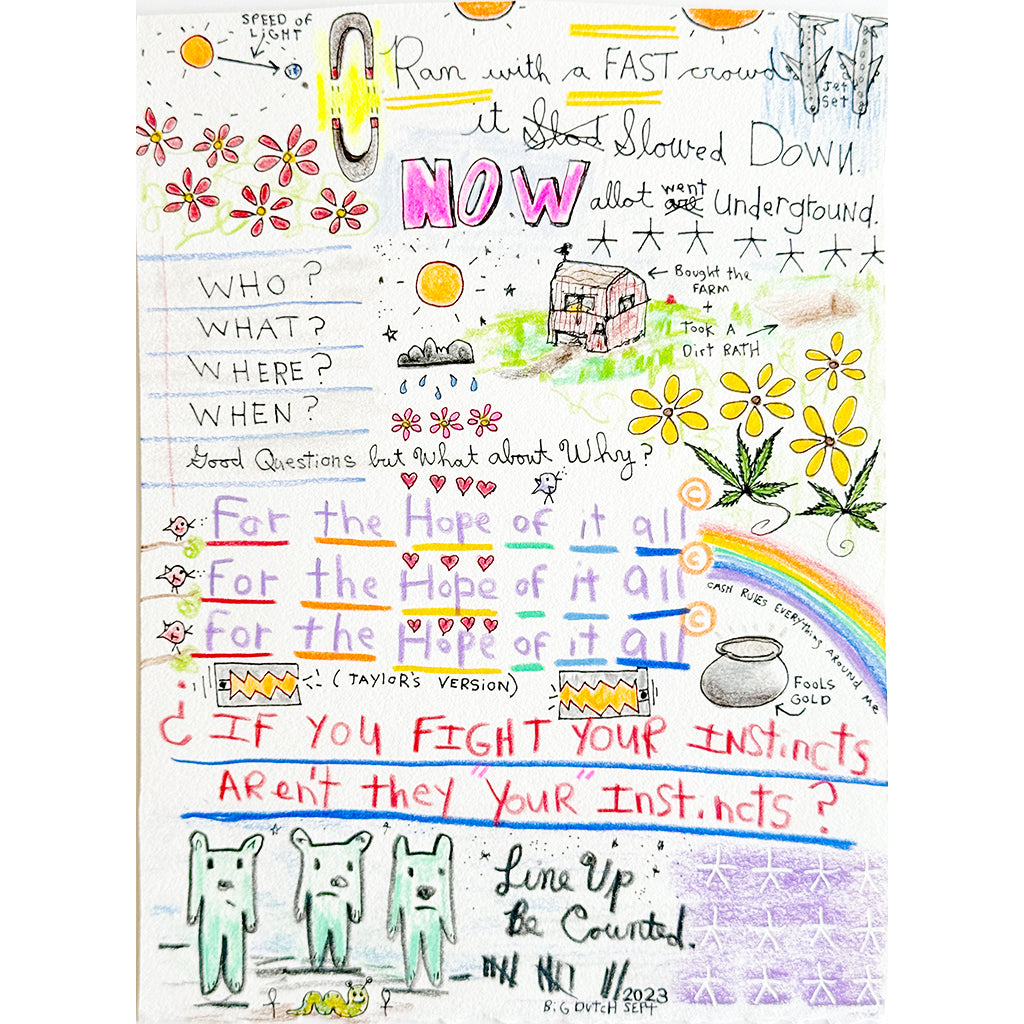 SPEED OF
LiGHT
Ran with a FAST crowd
Jet
Set
it Slowed Down.
NOW allot went Underground.
WHO?
WHAT?
WHERE?
WHEN?
Good Questions but What about Why?
Bought the
FARM
+
Took A
Dirt PATH
For the Hope of it all ©
For the Hope of it all ©
For the Hope of it all ©
(TAYLOR'S VERSION)
CASH RULES EVERYTHING AROUND ME
FOOLS
GOLD
¿ IF YOU FIGHT YOUR INSTiNCTS
AREn't they "YOUR" InstincTs?
Line Up
Be Counted.
2023
BiG DUTCH SEPT